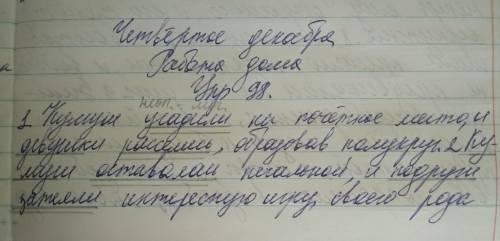 Четвёртое декабря
Работа дома
Упр 98.
неоп. - личн.
1. Кумуш усадили на почётное место, и
девушки расселись, образовав полукруг. 2 Ку-
муш оставалась печальной, и подруги
затеяли интересную игру, своего рода